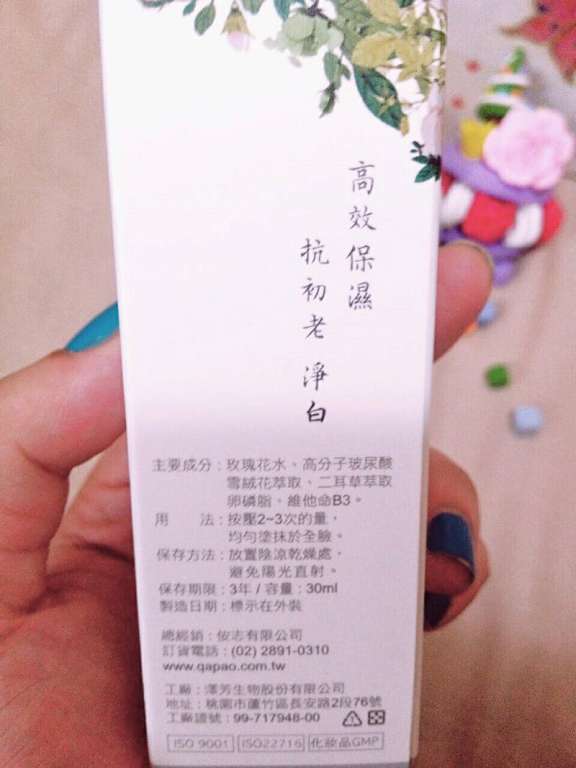 高效保濕
抗初老 淨白
主要成分：玫瑰花水、高分子玻尿酸
雪絨花萃取、二耳草萃取
卵磷脂、維他命B3。
用　　法：按壓2~3次的量，
均勻塗抹於全臉。
保存方法：放置陰涼乾燥處，
避免陽光直射。
保存期限：3年/容量：30ml
製造日期：標示在外裝
總經銷：侒志有限公司
訂貨電話：(02) 2891-0310
www.qapao.com.tw
工廠：澤芳生物股份有限公司
地址：桃園市蘆竹區長安路2段76號
工廠證號：99-717948-00
ISO 9001 ISO22716 化妝品GMP